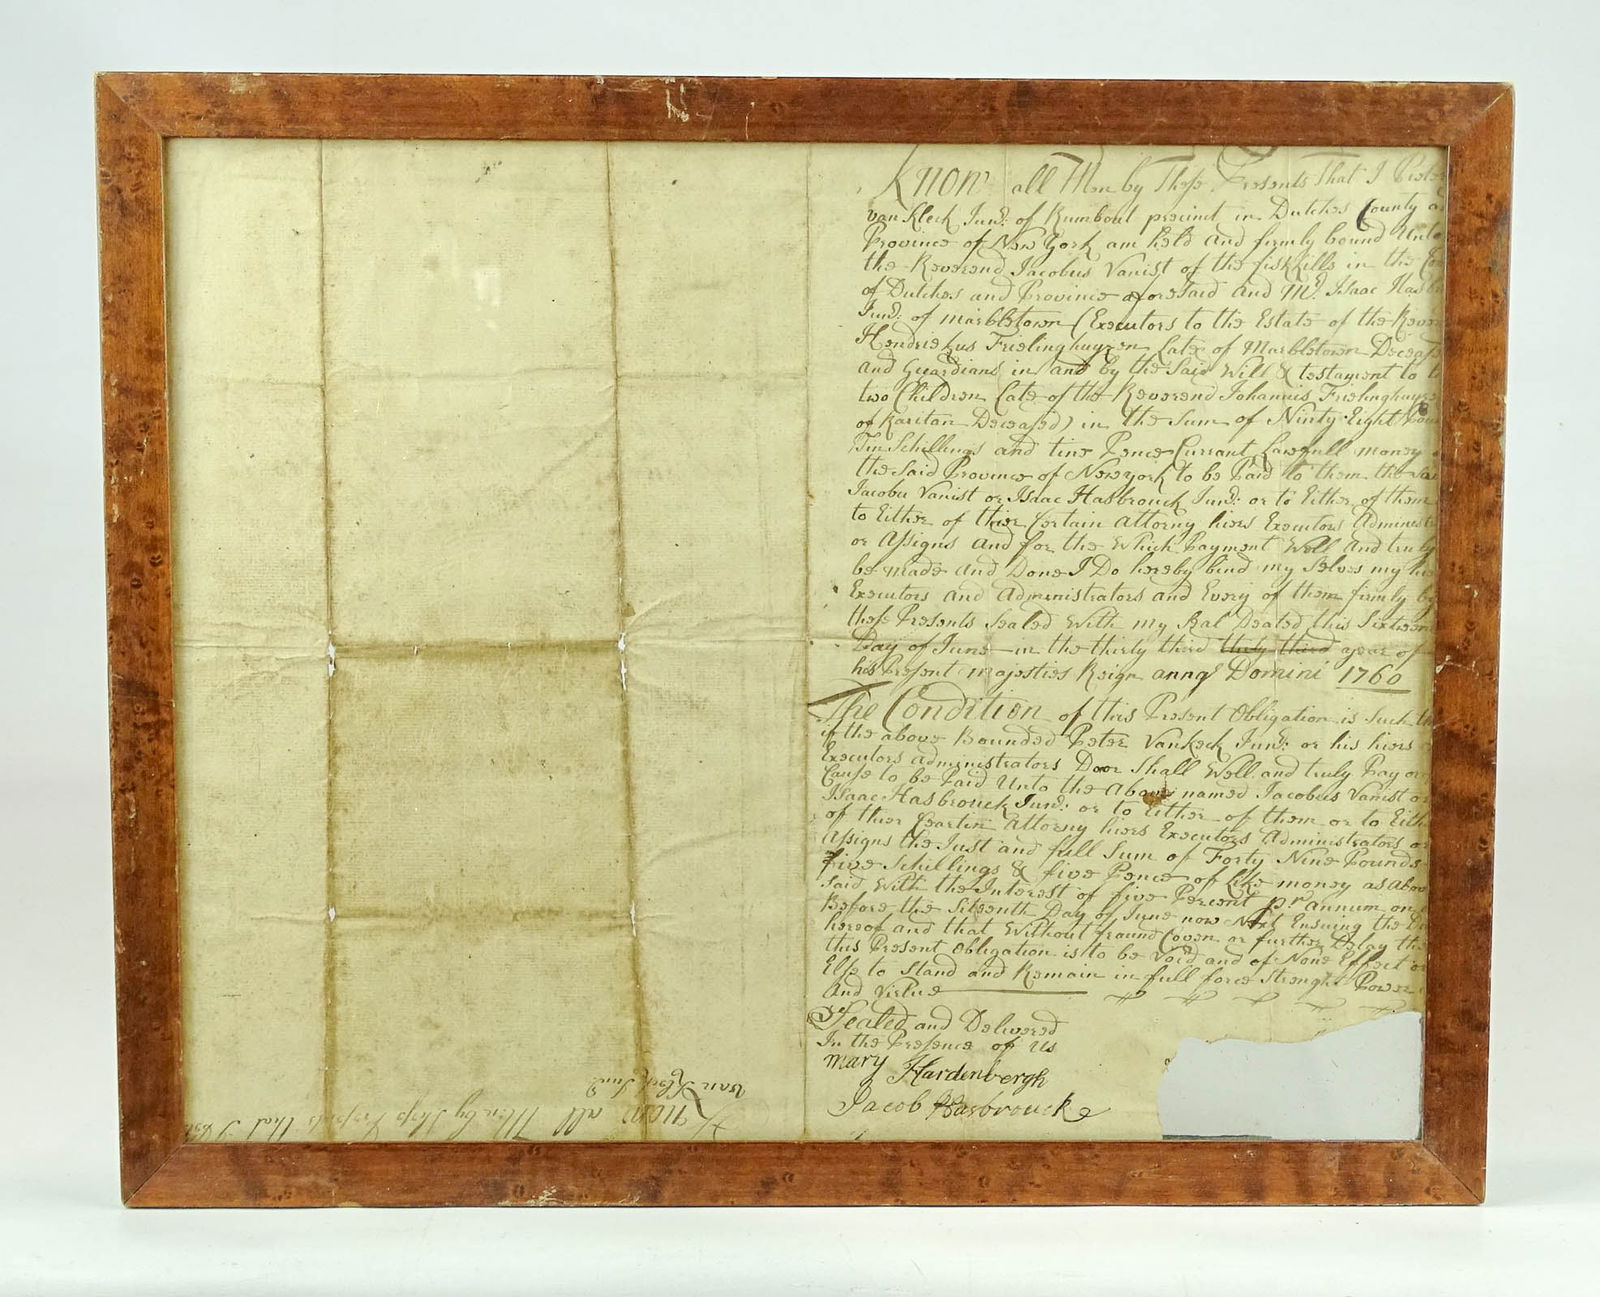 Know all Men by These Presents That I Peter
van Kleck Junr: of Rumbout precinct in Dutches County a
Province of New York am held and firmly bound Unto
the Reverend Jacobus Vanist of the fiskkills in the Co
of Dutches and Province aforesaid and Mr. Isaac Hasb
Junr: of marbletown (Executors to the Estate of the Rever
Hendrickus Frielinghuyzen Late of Marbletown Deceas
and Guardians in and by the Said Will & testament to t
two Children Late of the Reverend Johannis Frielinghuyz
of Raritan Deceased) in the Sum of Ninty Eight Pou
Ten Schillings and tine Pence Currant Lawfull money
the Said Province of New york to be Paid to them the Sai
Jacobu Vanist or Isaac Hasbrouck Junr: or to Either of them
to Either of thier Certain attorny hiers Executors Administr
or Assigns and for the Which Payment Well and truly
be made and Done I Do hereby bind my Selves my hie
Executors and administrators and Every of them firmly by
these Presents Sealed With my Seal Deated this Sixteen
Day of June in the thirty third thirty third year of
his Present majesties Reign anno Domini 1760
The Condition of this Present Obligation is Such th
if the above Bounded Peter Vankeck Junr: or his hiers
Executors administrators Door Shall Well and truly Pay or
Cause to be Paid Unto the Above named Jacobus Vanist o
Isaac Hasbrouck Junr: or to Either of them or to Eith
of thier Ceartin Attorny hiers Executors Administrators o
Assigns the Just and full Sum of Forty Nine Pounds
five Schillings & five Pence of like money as Abov
Said With the Interest of five Percent pr annum on
Before the Sixteenth Day of June now Next Ensuing the D
hereof and that Without fraund Coven or further Delay the
this Present obligation is to be Void and of None Effect o
Else to Stand and Remain in full force Strenght Power
and Virtue
Sealed and Delivered
In the Presence of Us
mary Hardenbergh
Jacob Hasbrouck
van Kleck Junr
Know all Men by These Presents that I